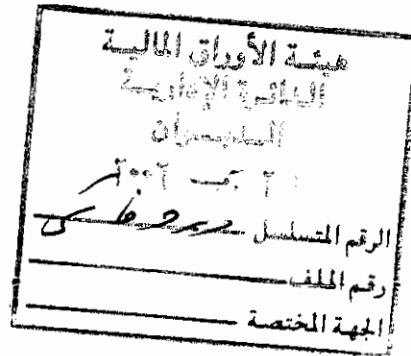 هيئة الأوراق المالية
الدائرة الإدارية
الديوان
الرقم المتسلسل
رقم الملف
الجهة المختصة